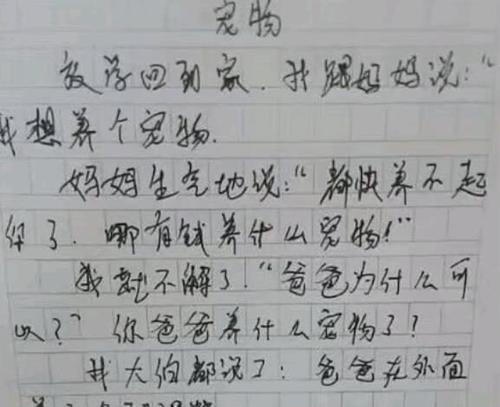 宠物
放学回到家.我跟妈妈说:“
我想养个宠物.
妈妈生气地说:“都快养不起
你了.哪有钱养什么宠物!”
我就不解了.“爸爸为什么可
以?”你爸爸养什么宠物了?
我大伯都说了:爸爸在外面